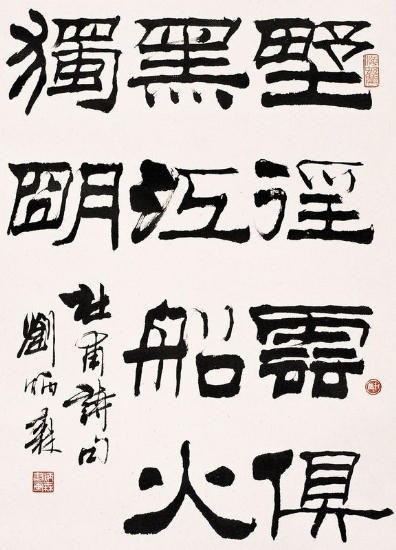 野徑雲俱
黑江船火
獨明
杜甫詩句
劉炳森